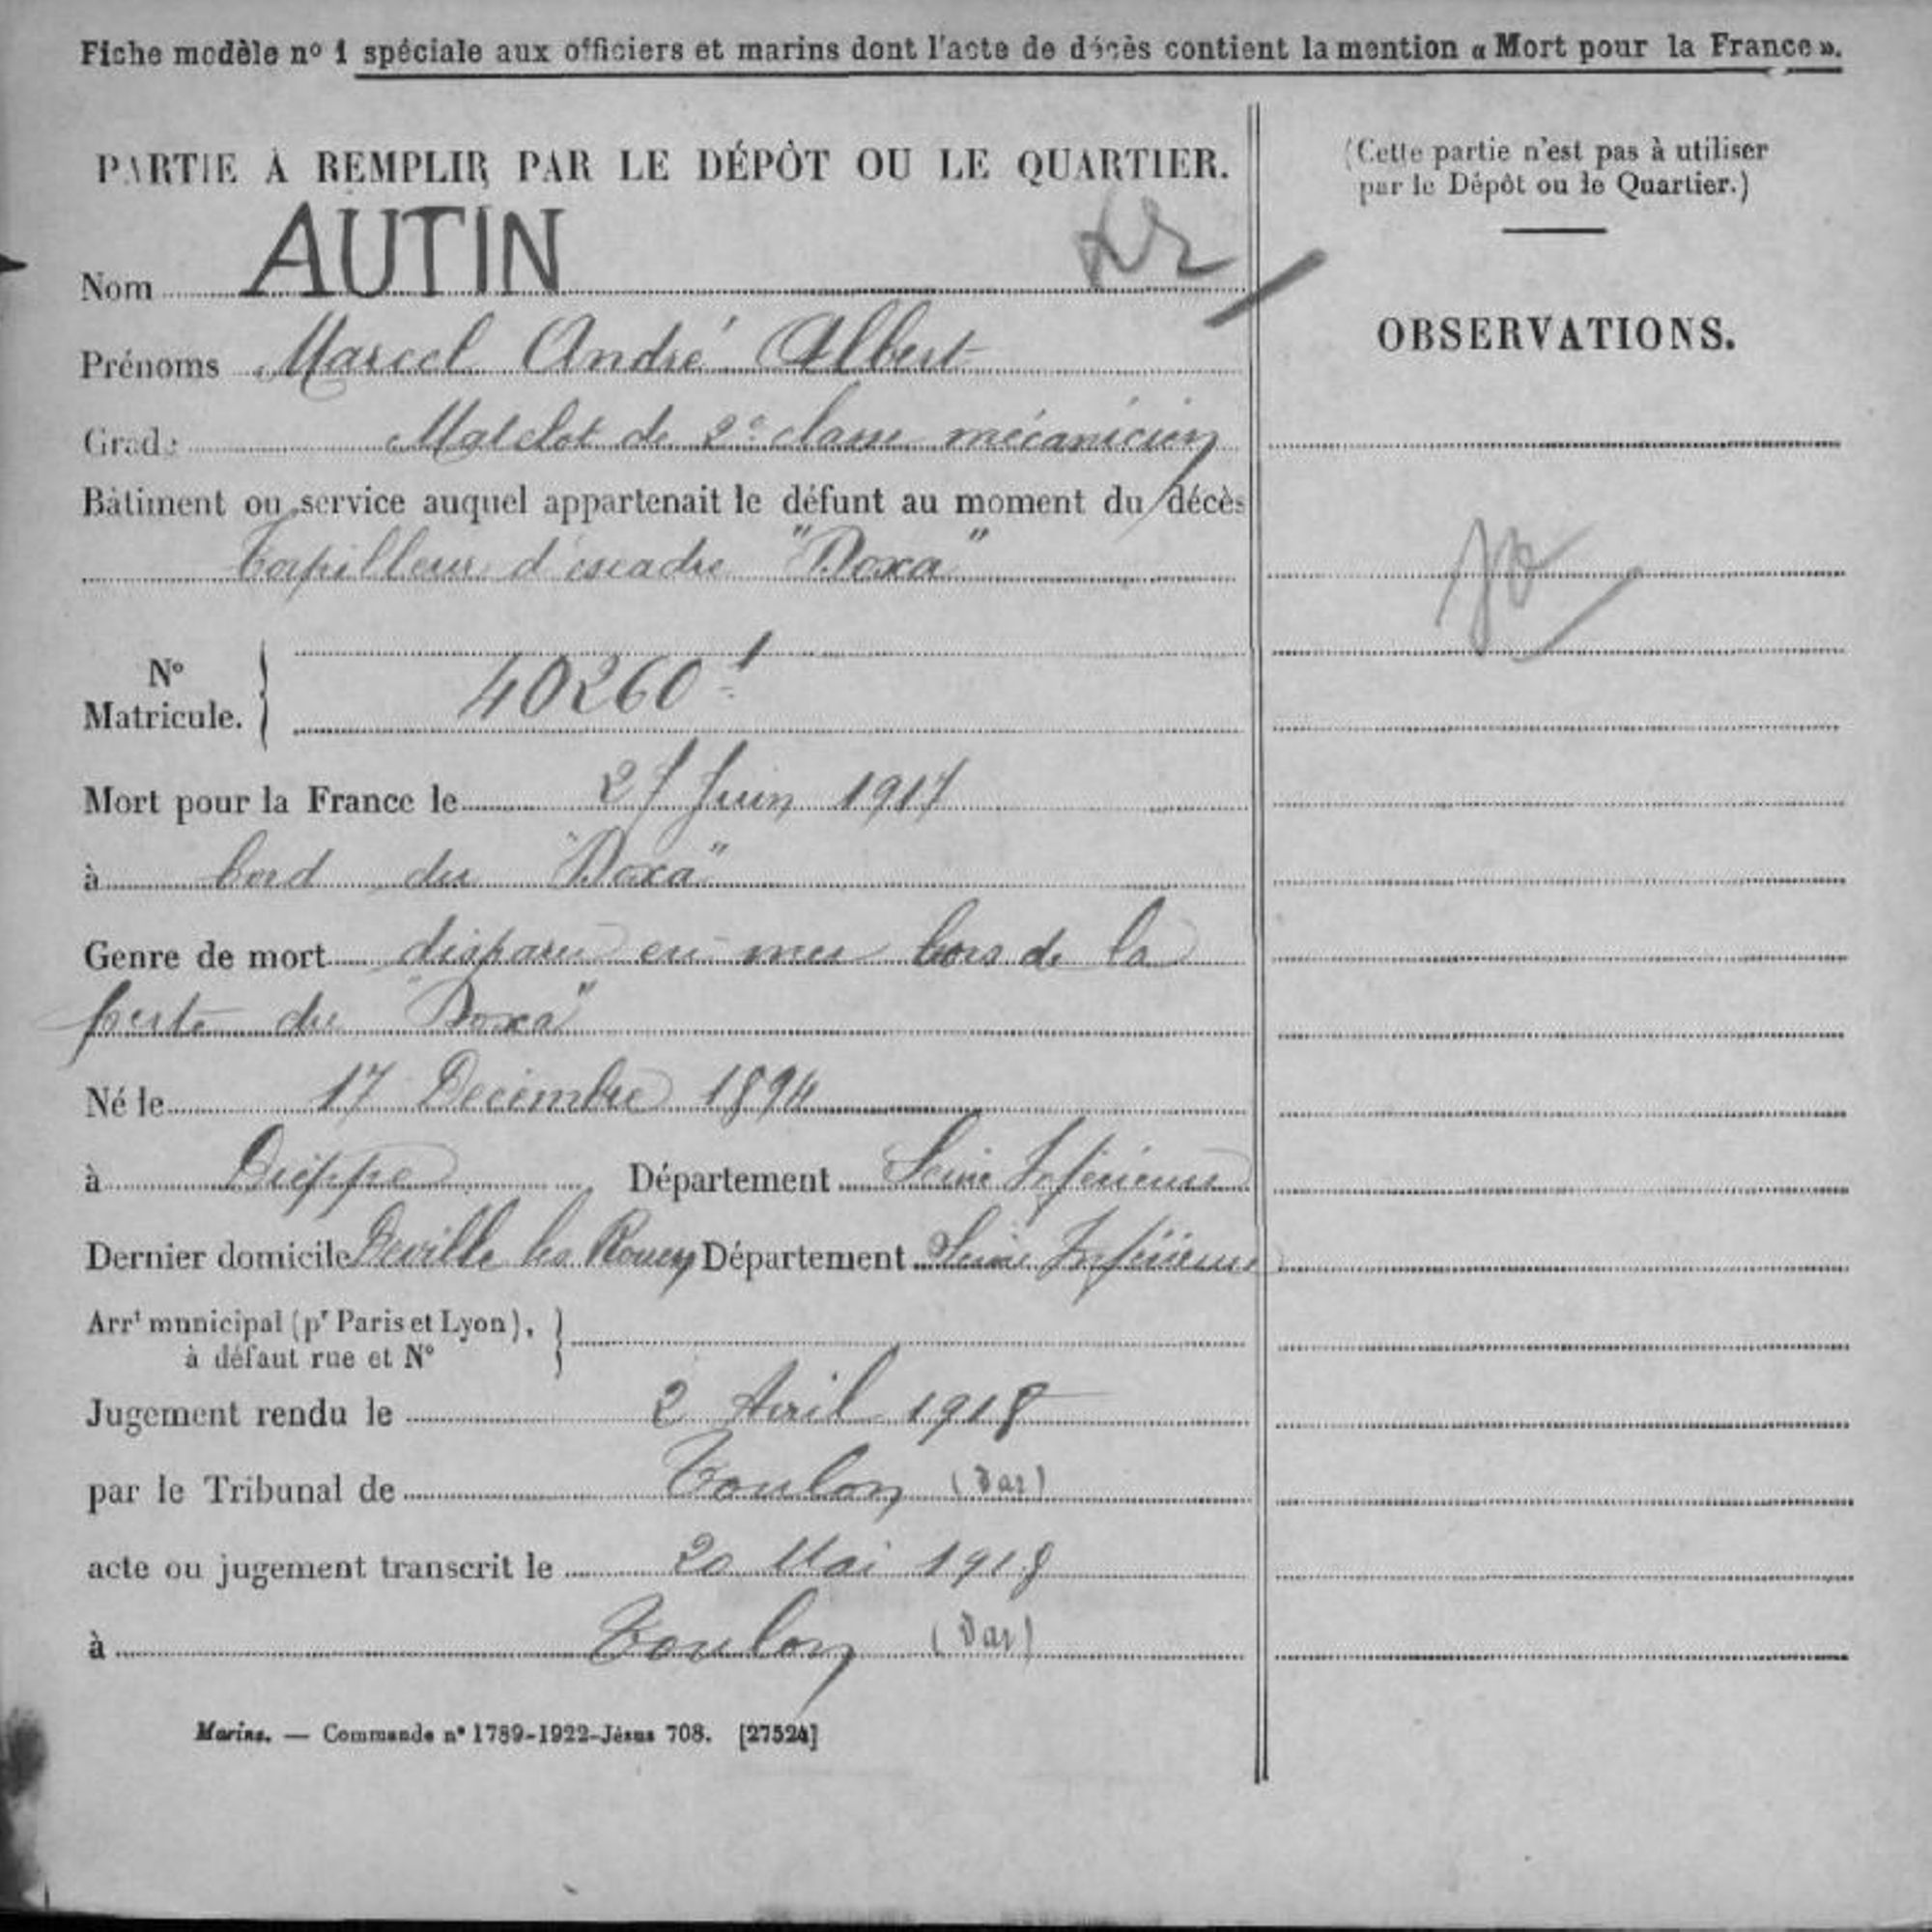 Fiche modèle nº 1 spéciale aux officiers et marins dont l'acte de décès contient la mention « Mort pour la France ».
PARTIE À REMPLIR PAR LE DÉPÔT OU LE QUARTIER.
Nom AUTIN
Prénoms Marcel André Albert
Grade Matelot de 2e classe mécanicien
Bâtiment ou service auquel appartenait le défunt au moment du décès
Torpilleur d'escadre "Doxa"
Nº Matricule. 40260-1
Mort pour la France le 27 Juin 1917
à bord du "Doxa"
Genre de mort disparu en mer lors de la
perte du "Doxa"
Né le 17 Décembre 1894
à Dieppe Département Seine Inférieure
Dernier domicile Deville les Rouen Département Seine Inférieure
Arrt municipal (pr Paris et Lyon),
à défaut rue et Nº
Jugement rendu le 2 Avril 1918
par le Tribunal de Toulon (Var)
acte ou jugement transcrit le 20 Mai 1918
à Toulon (Var)
Marins. — Commande nº 1789-1922-Jésus 708. [27524]
(Cette partie n'est pas à utiliser
par le Dépôt ou le Quartier.)
OBSERVATIONS.